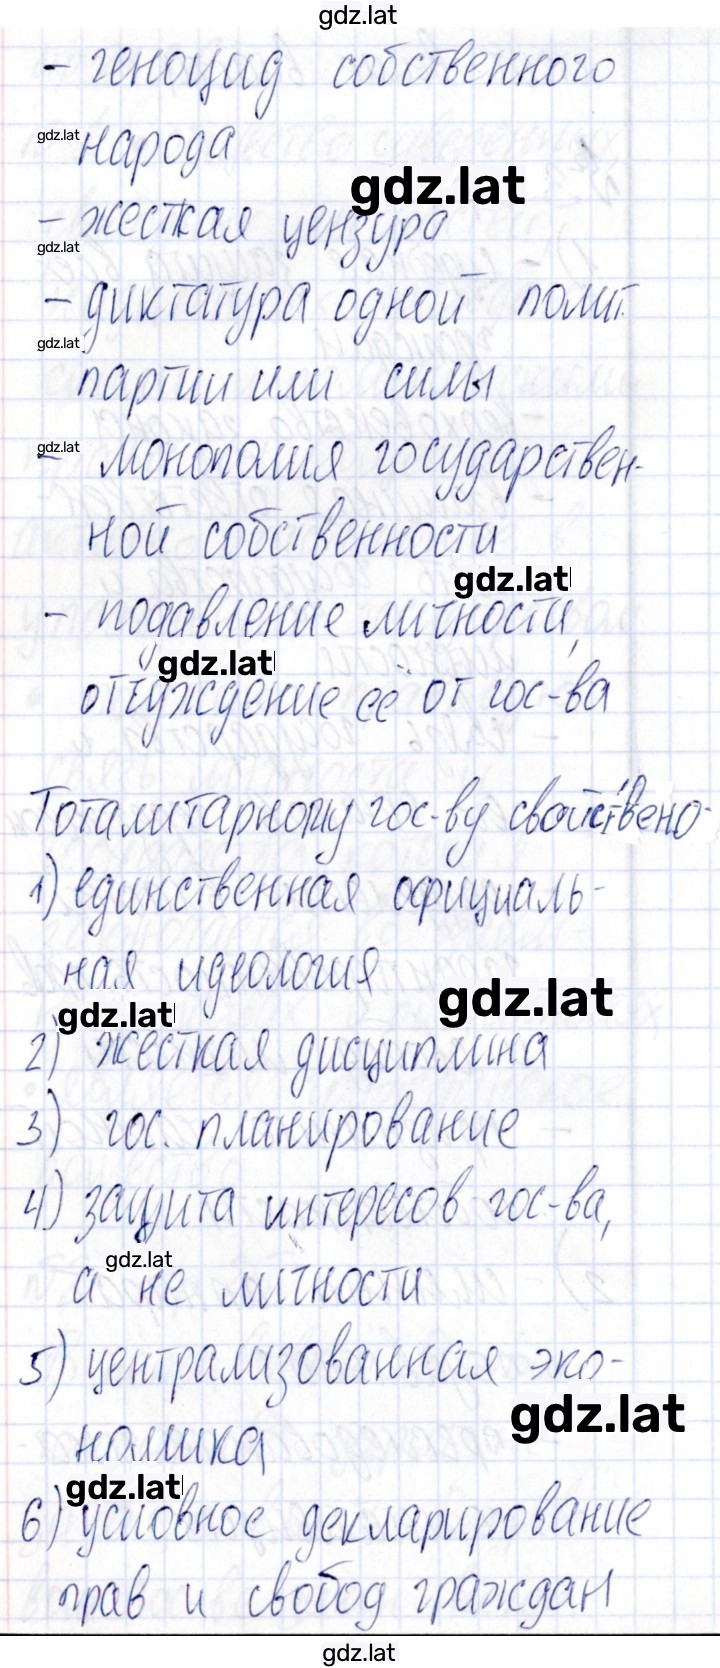 gdz.lat
- геноцид собственного
gdz.lat
народа
gdz.lat
- жесткая цензура
gdz.lat
- диктатура одной полит.
gdz.lat
партии или силы
gdz.lat
- монополия государствен-
ной собственности
gdz.lat
- подавление личности,
gdz.lat
отчуждение её от гос-ва
Тоталитарному гос-ву свойствено-
1) единственная официаль-
ная идеология
gdz.lat
gdz.lat
2) жесткая дисциплина
3) гос. планирование
4) защита интересов гос-ва,
gdz.lat
а не личности
5) централизованная эко-
gdz.lat
номика
gdz.lat
6) условное декларирование
прав и свобод граждан
gdz.lat